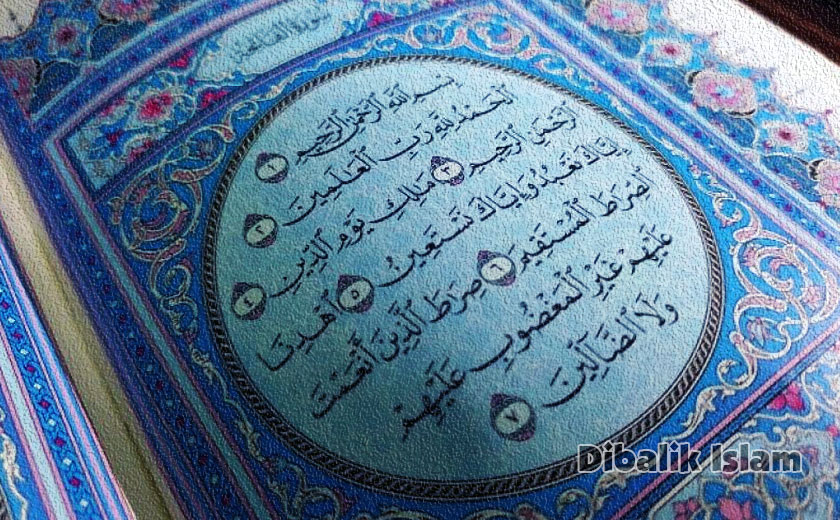 سورة الفاتحة
بِسْمِ ٱللَّهِ ٱلرَّحْمَٰنِ ٱلرَّحِيمِ ١
ٱلْحَمْدُ لِلَّهِ رَبِّ ٱلْعَٰلَمِينَ ٢
ٱلرَّحْمَٰنِ ٱلرَّحِيمِ ٣ مَٰلِكِ يَوْمِ ٱلدِّينِ ٤
إِيَّاكَ نَعْبُدُ وَإِيَّاكَ نَسْتَعِينُ ٥ ٱهْدِنَا
ٱلصِّرَٰطَ ٱلْمُسْتَقِيمَ ٦ صِرَٰطَ ٱلَّذِينَ أَنْعَمْتَ
عَلَيْهِمْ غَيْرِ ٱلْمَغْضُوبِ عَلَيْهِمْ
وَلَا ٱلضَّآلِّينَ ٧
Dibalik Islam